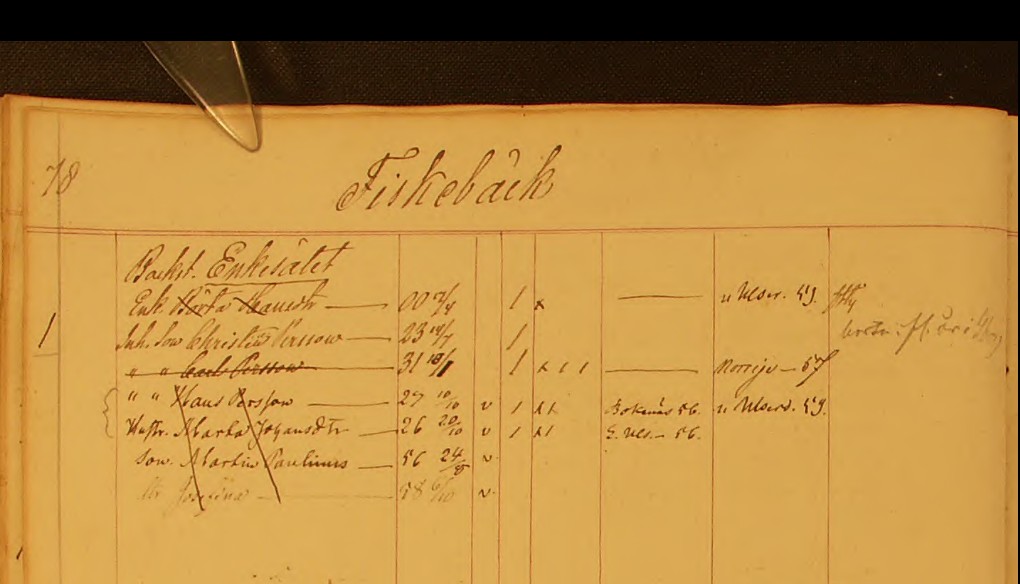 78
Fiskebäck
Backst. Enkesätet
Enk. Börta Hansdtr 00 /4 1 x — u 59.
1 Inh. Son Christen Persson 23 1
" " Carl Persson 31 18/1 1 x 1 1 — Norrige — 57
" " Hans Persson 27 10/10 v 1 x 1 Bokenäs 56. u 59.
Hustr. Marta Johansdtr 26 20/10 v 1 x 1 56.
son. Martin Paulinus 56 24/8 v
Josefina 58 /10 v